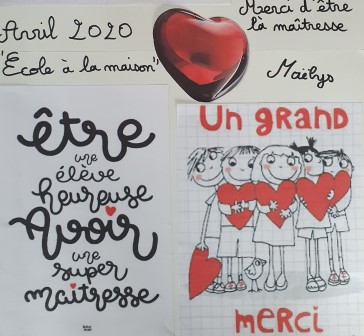 Avril 2020
"École à la maison"
Merci d'être
là maîtresse
Maëlys
être
une
élève
heureuse
Avoir
une
super
maitresse
Un grand
merci